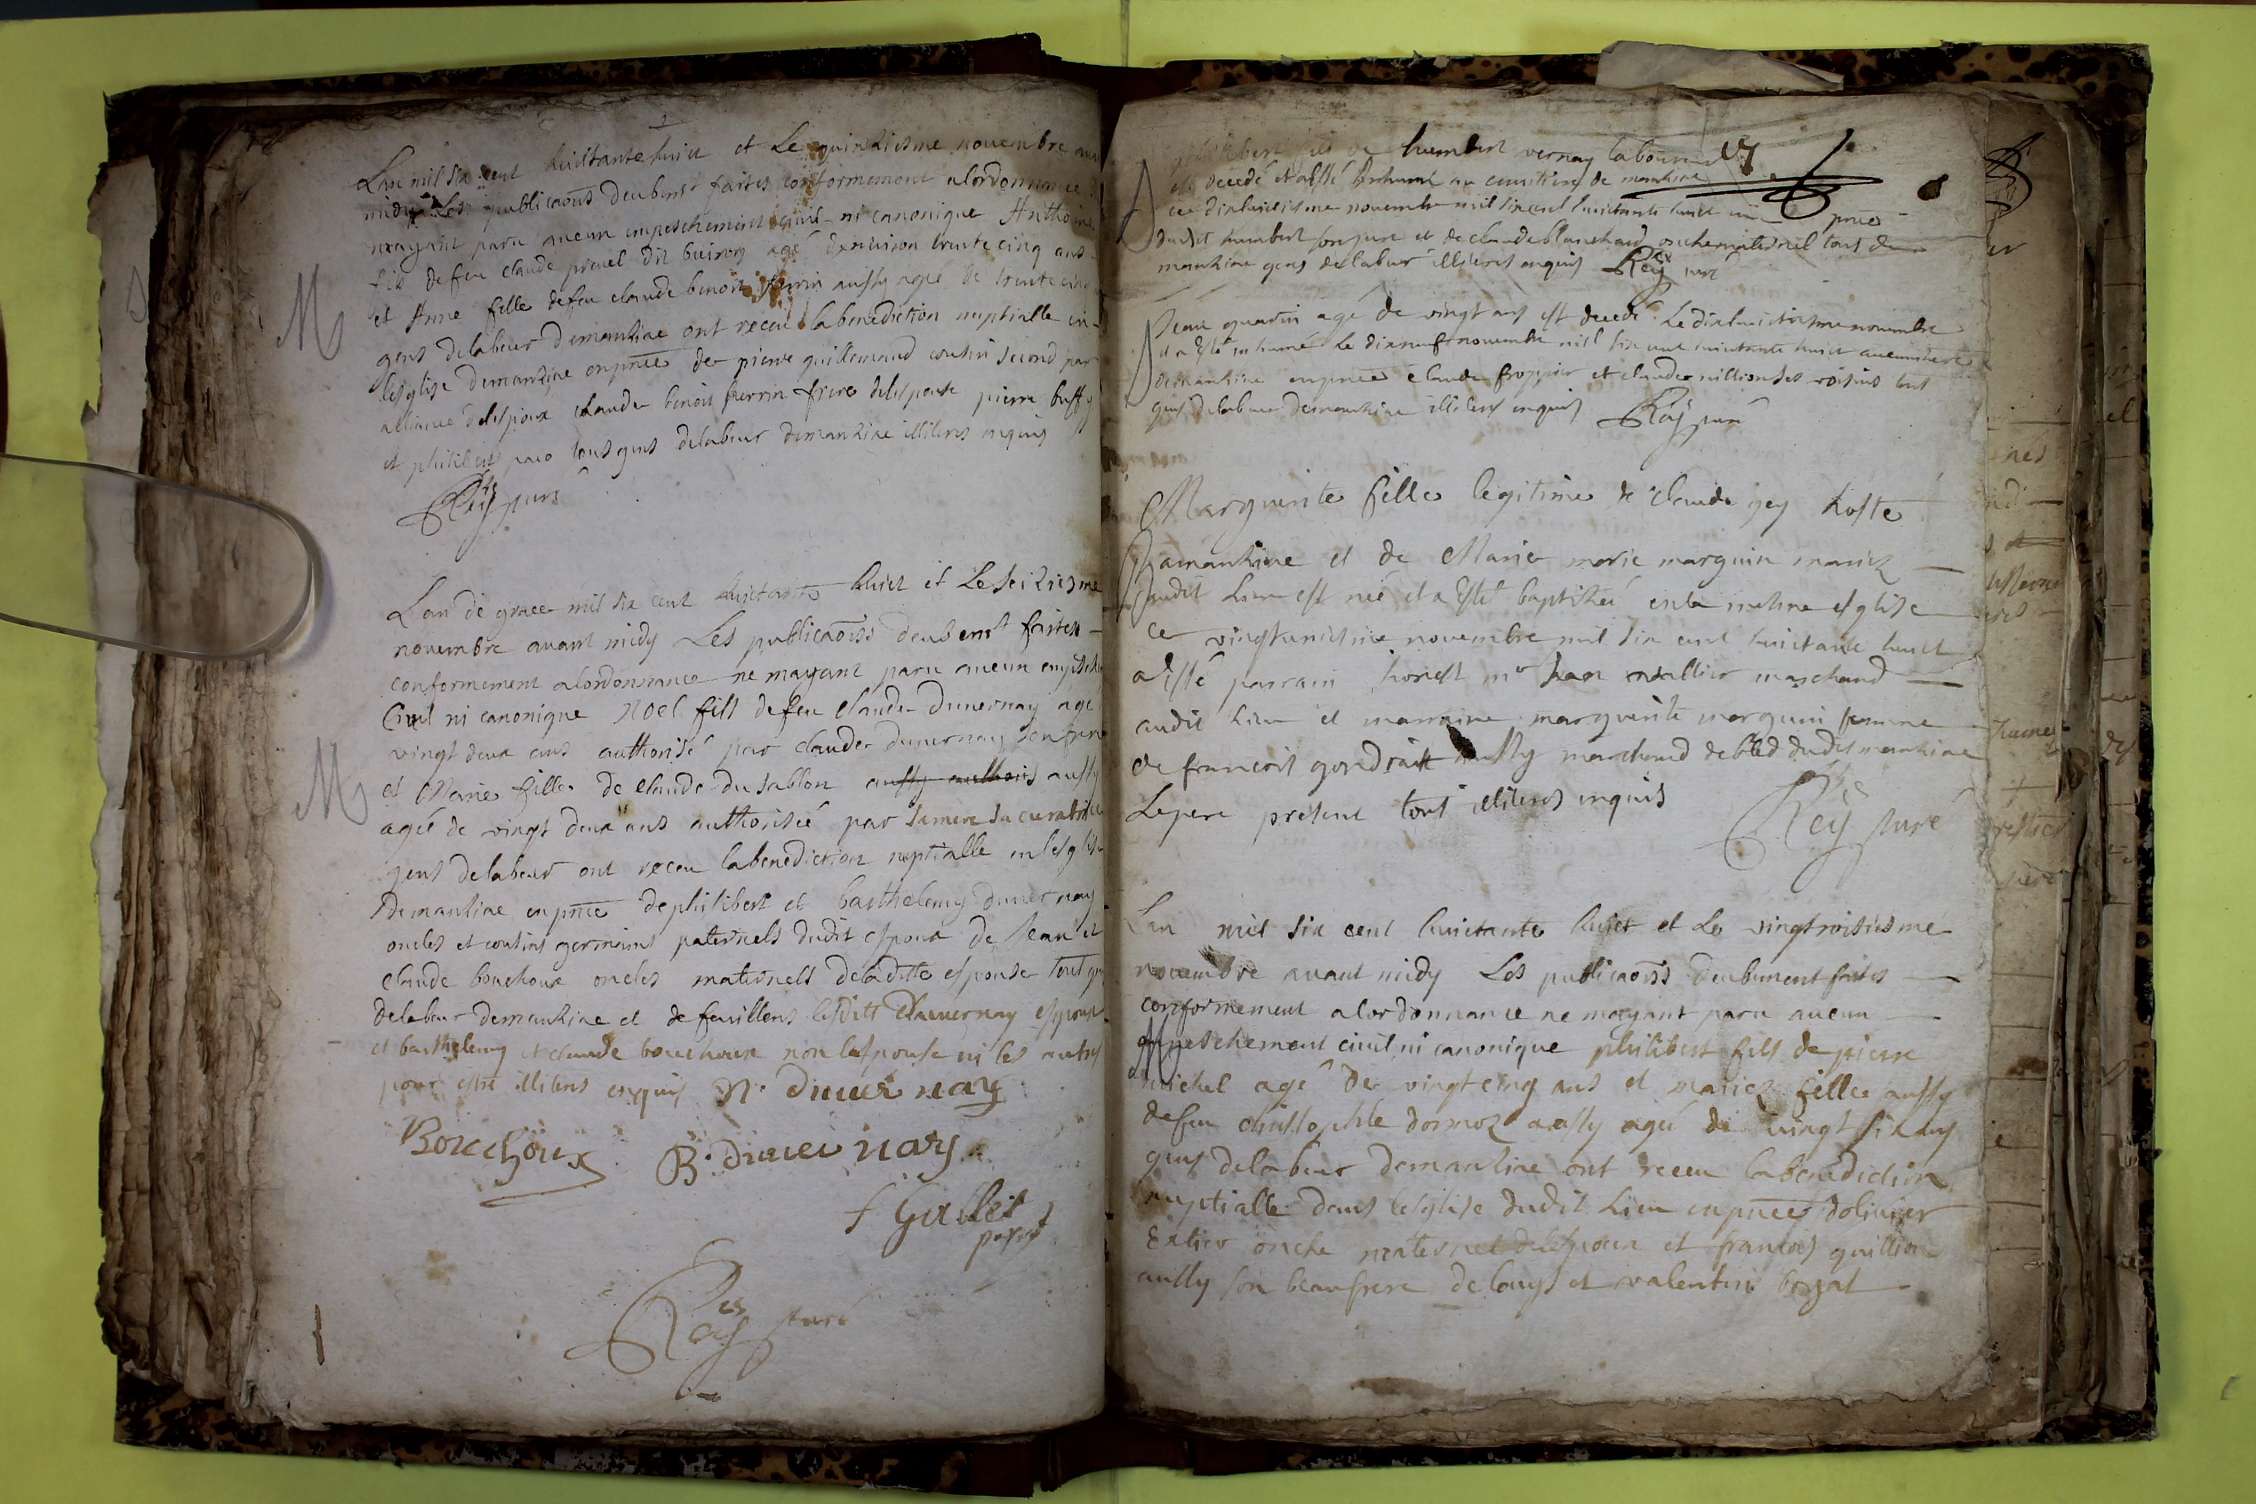 Lan mil six cent huictante huict et Le quinziesme novembre avant
midy Les publicaons deubmt faites conformement alordonnance
nayant paru aucun empeschement civil ni canonique Anthoine
fils de feu claude prevel dit buiron agé denviron trente cinq ans
et Anne fille defeu claude benoit perrin aussy agée de trente cinq
gens delabeur demanziae ont receu labenediction nuptialle en
lesglise demanziae enpnce de pierre guillermand cousin second par
alliance delespoux claude benoit perrin frere delespouse pierre buffy
et philibert tous gens delabeur demanziae illiteres enquis
Rey curé
M
Lan de grace mil six cent huictante huict et Le seiziesme
novembre avant midy Les publicaons deubemt faites
conformement alordonnance ne mayant paru aucun empesche
Civil ni canonique Noel fils defeu Claude Duvernay agé
vingt deux ans authorisé par claude duvernay son frere
et Marie fille de Claude Dusablon aussy authoris aussy
agée de vingt deux ans authorisée par samere sa curatrice
gens delabeur ont receu labenediction nuptialle en lesglise
demanziae enpnce dephilibert et barthelemy duvernay
oncles et cousins germains paternels dudit espoux de Jean et
Claude bouchoux oncles maternels deladitte espouse tous gens
delabeur demanziae et defeuillens lesdits Duvernay espoux
et barthelemy et claude bouchoux non lespouse ni les autres
pour estre illiteres enquis N. duvernay
M
Bouchoux B. duvernay
f Gallet
pnt
Rey curé
philibert fils de humbert vernay laboureur
est decedé et a esté Inhumé au cimitiere de manziae
cee dixhuictisme novembre mil six cent huictante huict en pnce
dudit humbert son pere et de claude blanchard oncle maternel tous de
manziae gens delabeur illiteres enquis Rey curé
Jean guerin agé de vingt ans est decedé Le dixhuictiesme novembre
et a Esté inhumé Le dixneuf novembre mil six cent huictante huict aucimitiere
demanziae enpnce claude froppier et claude nillion ses voisins tous
gens delabeur demanziae illiteres enquis Rey curé
Marguerite fille legitime de Claude gey hoste
amanziae et de Marie marguin mariez
dudit Lieu est née et a Esté baptizée en la mesme esglise
ce vingtuniesme novembre mil six cent huictante huict
a Esté parrain honest mr Jean vallier marchand
audit Lieu et marraine marguerite marguin femme
de francois gondrait aussy marchand debled dudit manziae
Lepere présent tous illiteres enquis
Rey curé
Lan mil six cent huictante huict et Le vingtroisiesme
novembre avant midy Les publicaons deubement faites
conformement alordonnance ne mayant paru aucun
empeschement civil ni canonique philibert fils de pierre
michel agé de vingtcinq ans et mariez fille aussy
defeu christophle dormoz aussy agée de vingt six ans
gens delabeur demanziae ont receu labenediction
nuptialle dans lesglise dudit Lieu enpnce dolivier
oncle maternel delespoux et francois guillion
aussy son beaufrere de louys et valentin
M